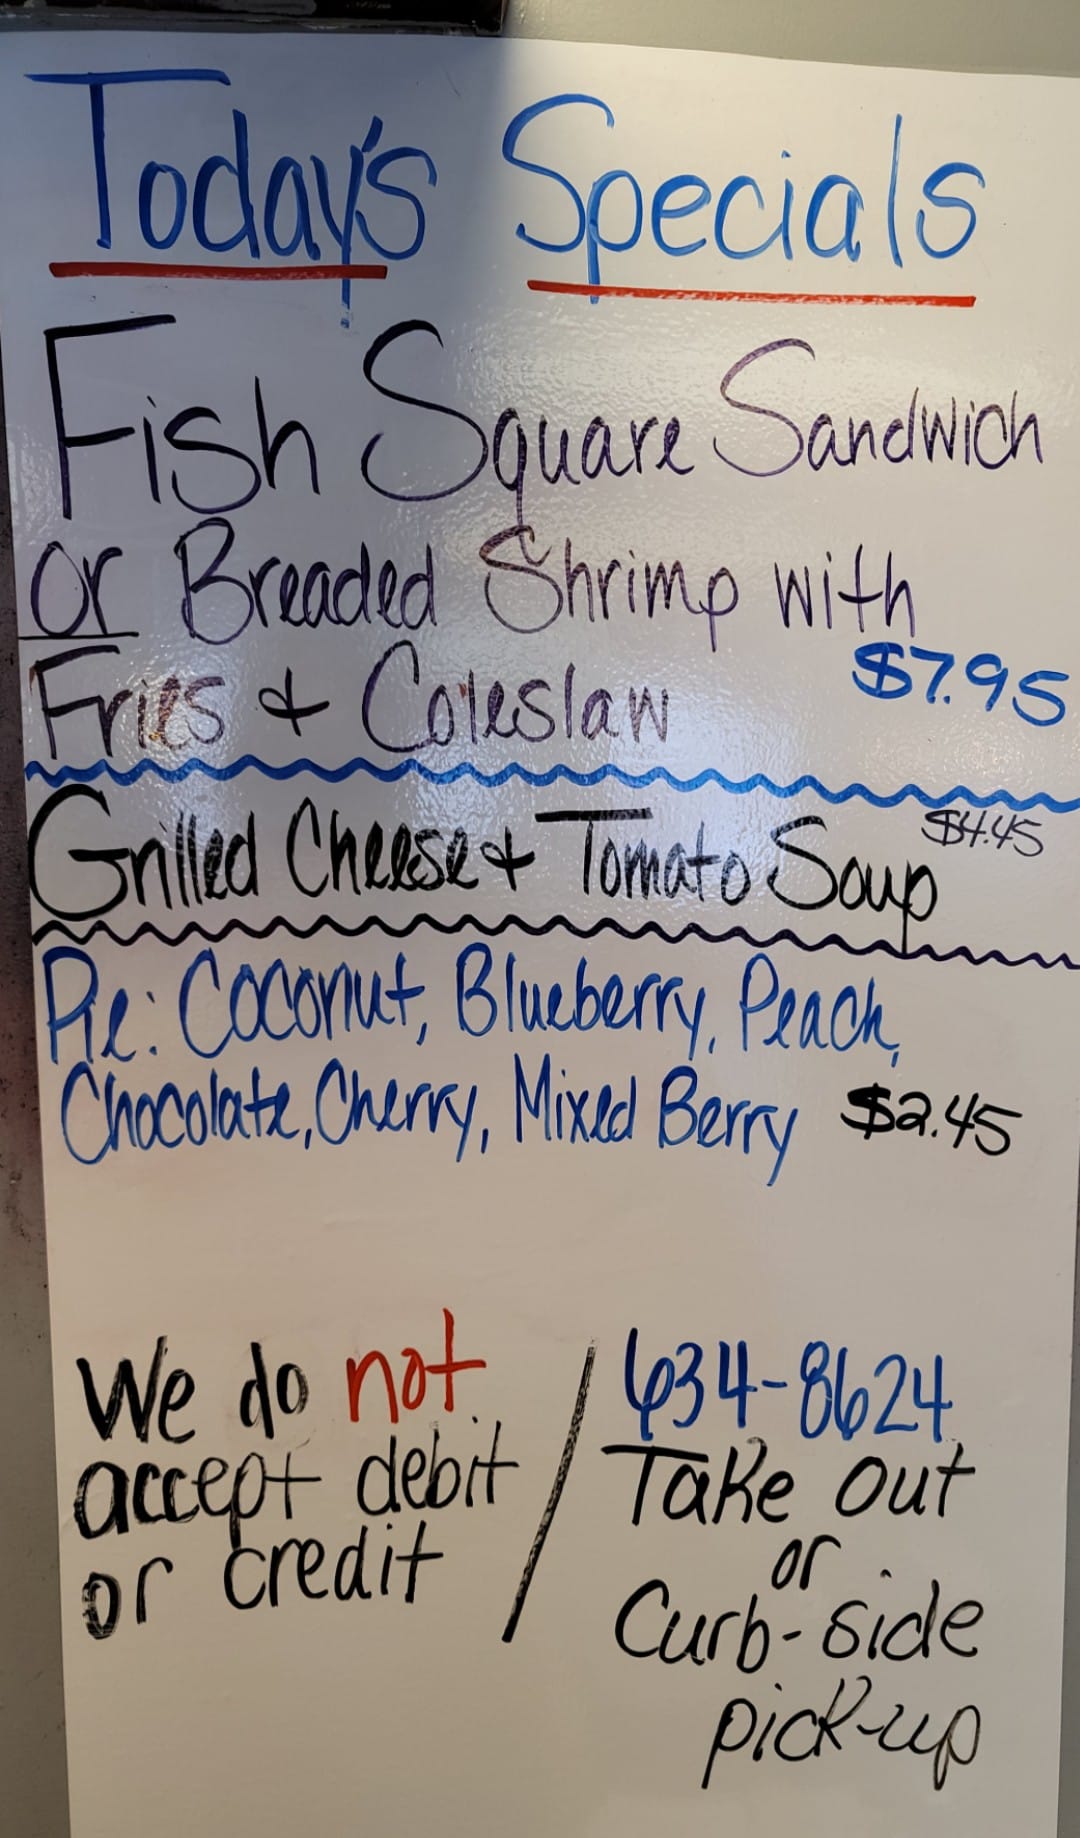 Today's Specials
Fish Square Sandwich
or Breaded Shrimp with
Fries & Coleslaw $7.95
Grilled Cheese & Tomato Soup $4.45
Pie: Coconut, Blueberry, Peach,
Chocolate, Cherry, Mixed Berry $2.45
We do not
accept debit
or credit
634-8624
Take out
or
Curb-side
pick-up